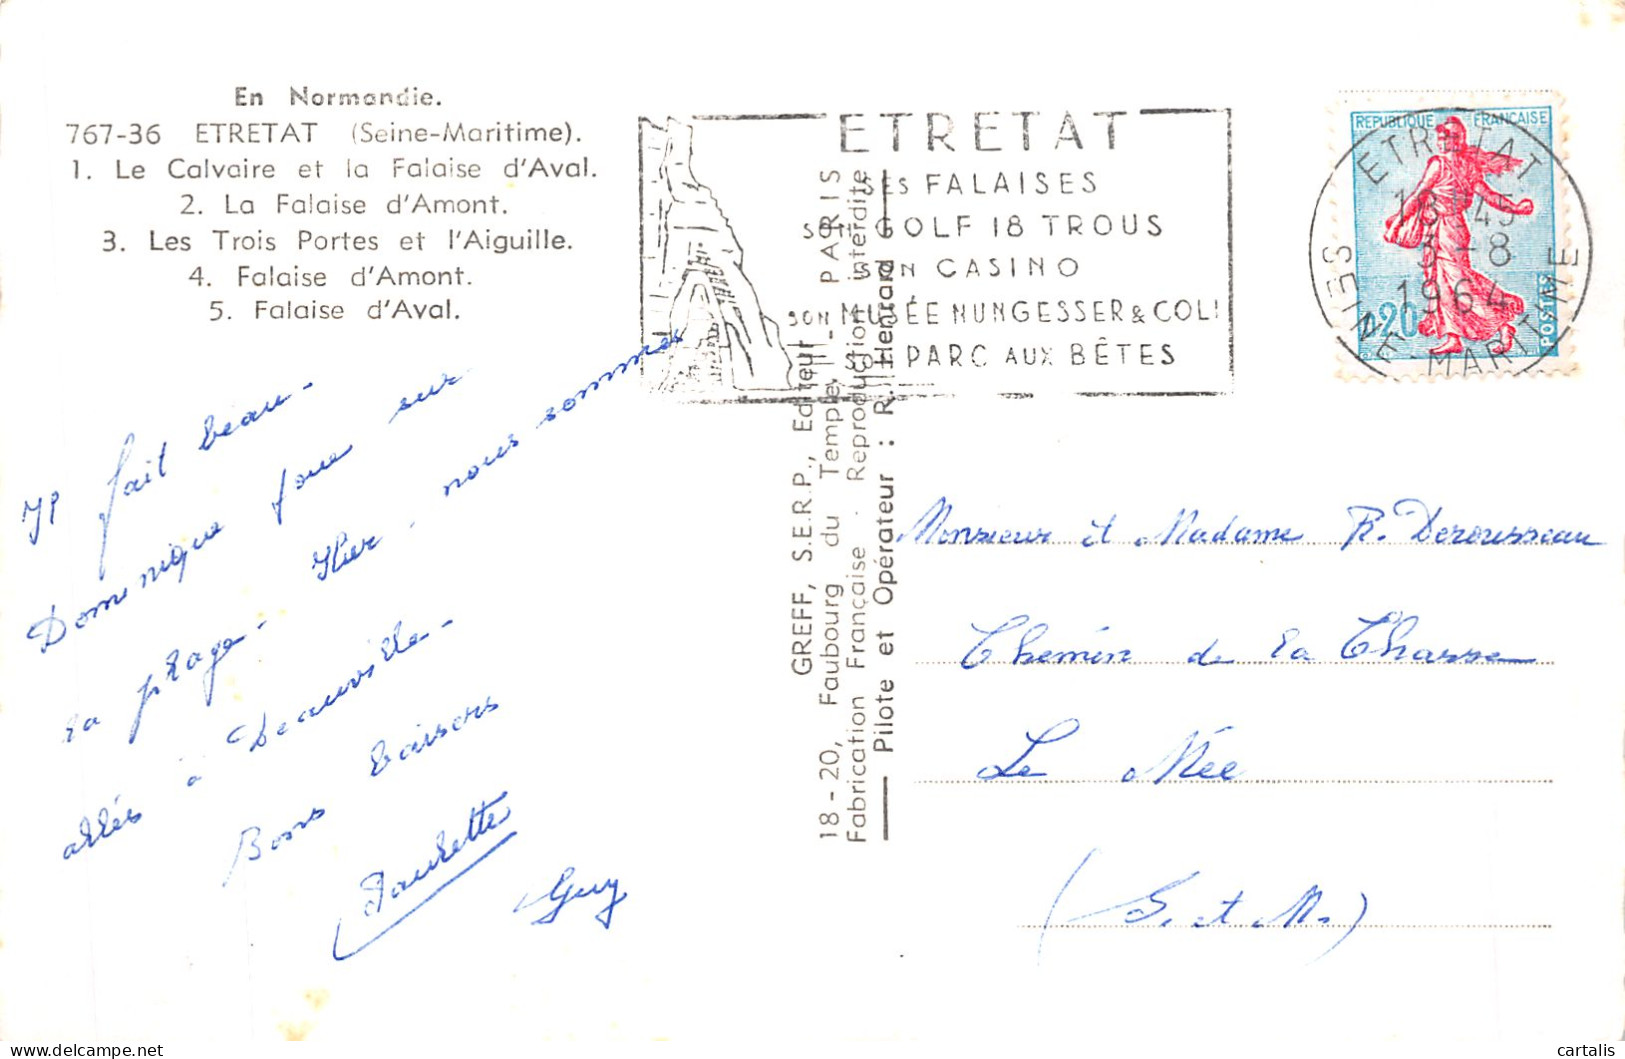 En Normandie.
767-36 ETRETAT (Seine-Maritime).
1. Le Calvaire et la Falaise d'Aval.
2. La Falaise d'Amont.
3. Les Trois Portes et l'Aiguille.
4. Falaise d'Amont.
5. Falaise d'Aval.
Il fait beau -
Dominique joue sur
la plage - Hier, nous sommes
allés à Deauville -
Bons baisers
Paulette
Guy
GREFF, S.E.R.P., Editeur
18 - 20, Faubourg du Temple, - PARIS
Fabrication Française - Reproduction interdite
Pilote et Opérateur : R. Henrard
ETRETAT
SES FALAISES
SON GOLF 18 TROUS
SON CASINO
SON MUSÉE NUNGESSER & COLI
PARC AUX BÊTES
REPUBLIQUE FRANÇAISE
0,20
POSTES
ETRETAT
18 H 45
3 - 8
1964
SEINE - MARITIME
Monsieur et Madame R. Derousseau
Chemin de la Chasse
Le Mée
(S. et M.)
cartalis